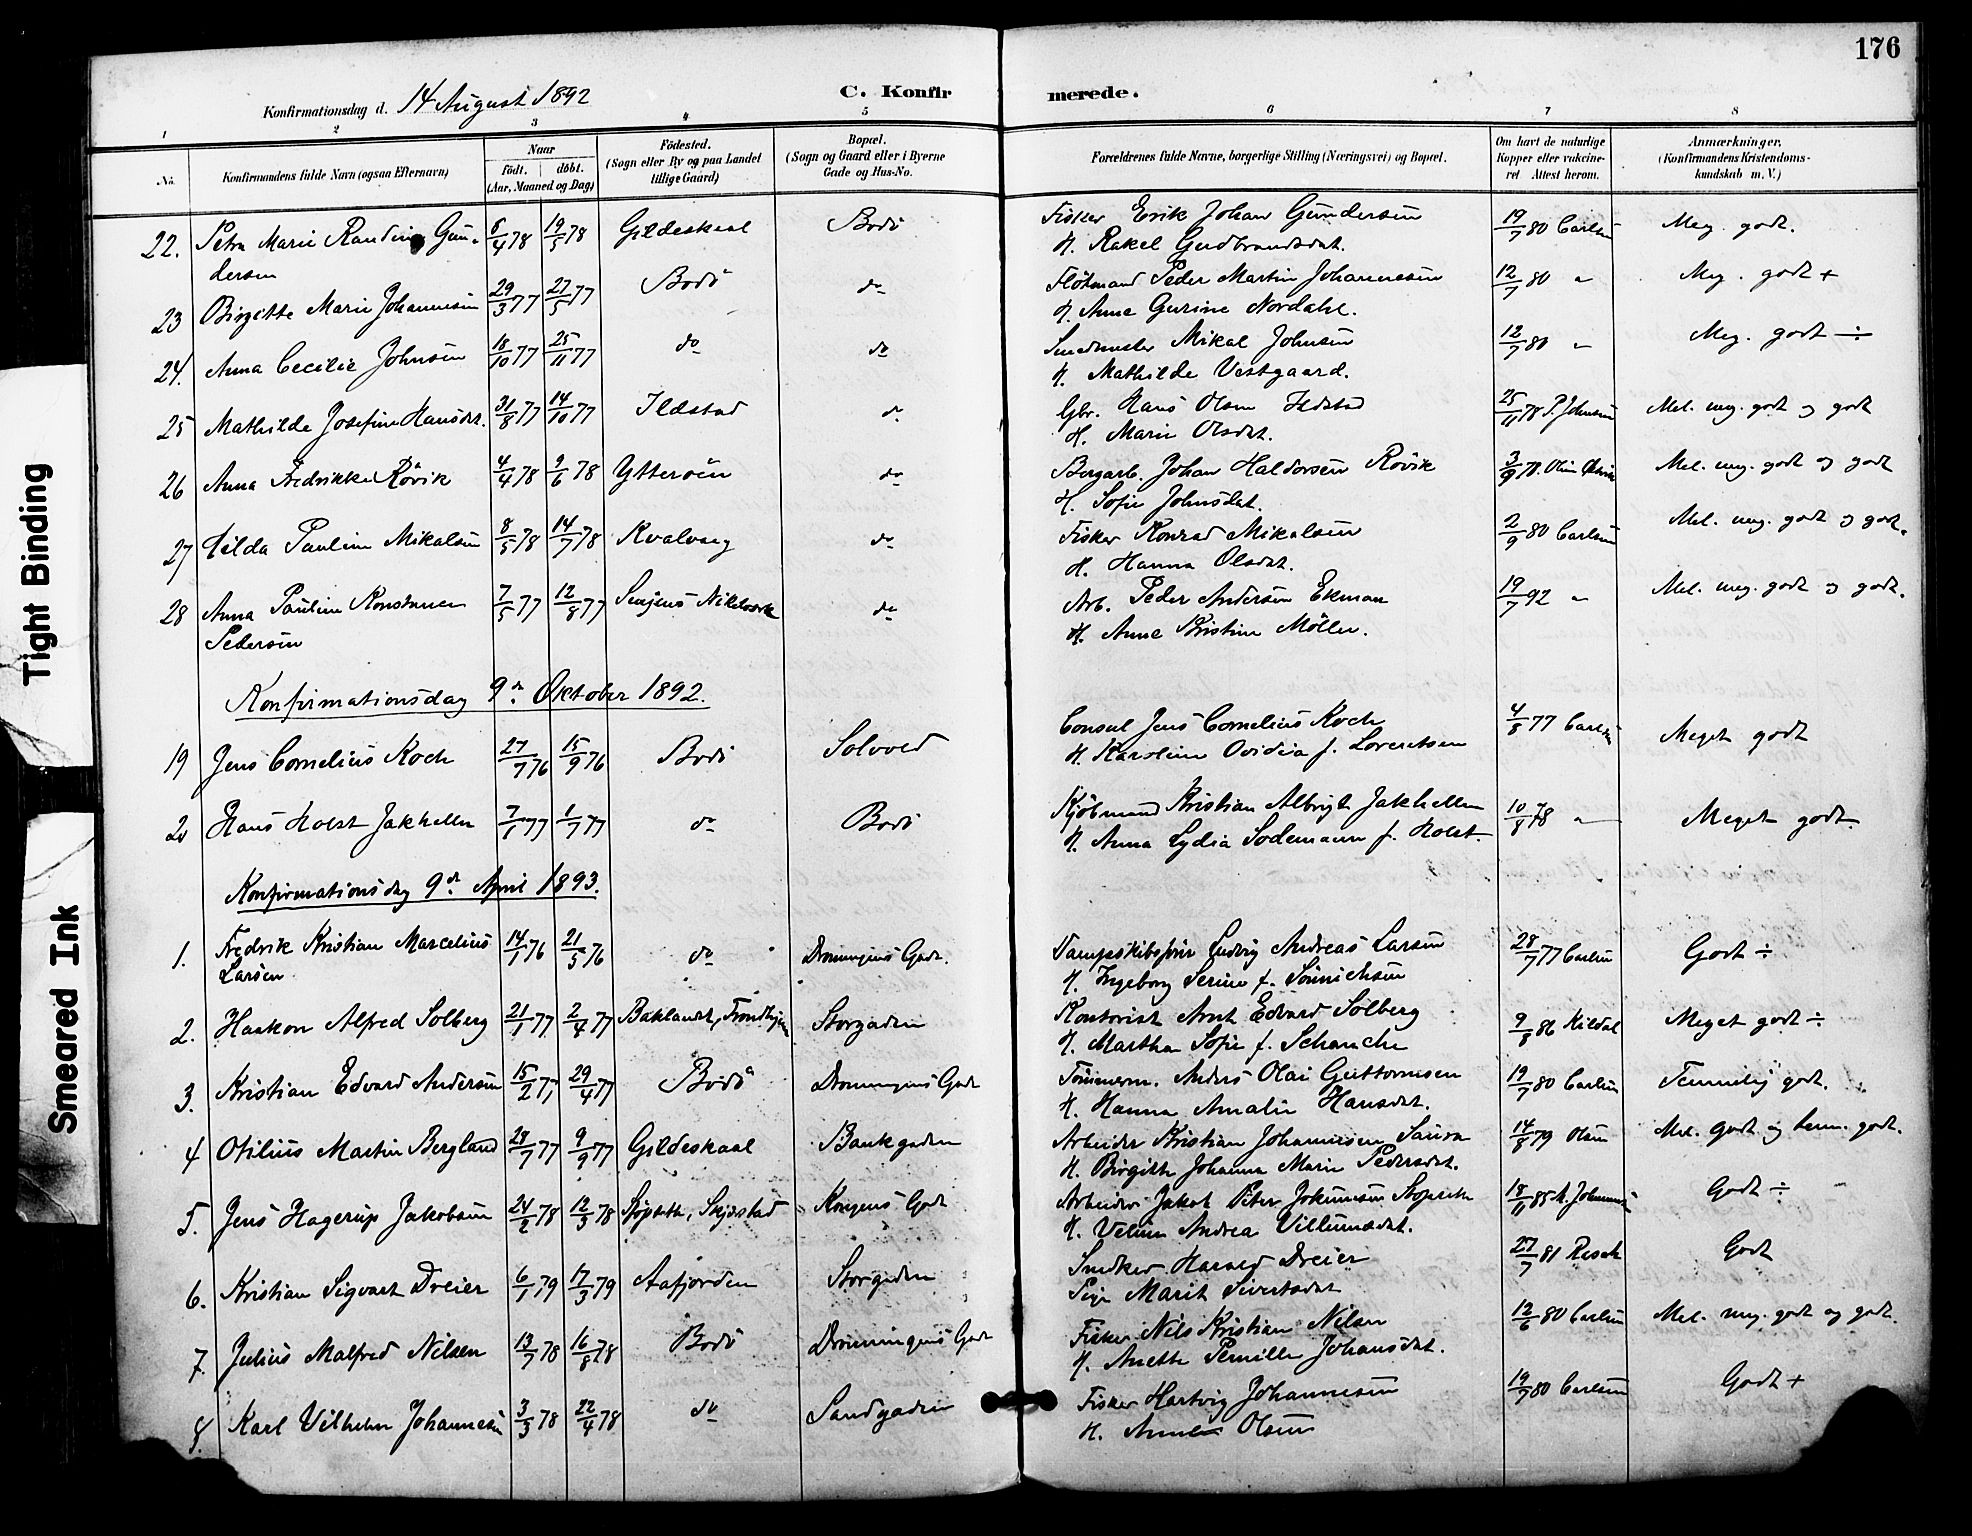 176
Konfirmationsdag d. 14 August 1892
C. Konfir merede.
1 2 3 4 5 6 7 8
No. Konfirmandens fulde Navn (ogsaa Efternavn) Naar födt. döbt. (Aar, Maaned og Dag) Födested. (Sogn eller By og paa Landet tillige Gaard) Bopæl. (Sogn og Gaard eller i Byerne Gade og Hus-No. Forældrenes fulde Navne, borgerlige Stilling (Næringsvei) og Bopæl. Om havt de naturlige Kopper eller vakcineret Attest herom. Anmærkninger, (Konfirmandens Kristendomskundskab m. V.)
22. Petra Marie Randine Gundersen 8/4 78 19/5 78 Gildeskaal Bodö Fisker Erik Johan Gundersen
H. Rakel Gudbrandsdat. 19/7 80 Carlsen Meg. godt.
23 Birgitte Marie Johannesen 29/3 77 27/5 77 Bodö do Flötmand Peder Martin Johannesen
H. Anne Gurine Nordahl. 12/7 80 " Meg. godt +
24. Anna Cecilie Johnsen 18/10 77 25/11 77 do do Smedmester Mikal Johnsen
H. Mathilde Vestgaard. 12/7 80 " Meg. godt ÷
25 Mathilde Josefine Hansdat. 31/8 77 14/10 77 Ildstad do Gbr. Hans Olsen Ildstad
H. Marie Olsdat. 25/11 78 P. Johnsen Mel. meg. godt og godt
26 Anna Fredrikke Rövik 4/4 78 9/6 78 Ytteröen do Bergarb. Johan Haldorsen Rövik
H. Sofie Johnsdat. 3/9 78 Mel. meg. godt og godt
27 Hilda Pauline Mikalsen 8/5 78 14/7 78 Kvalvaag do Fisker Konrad Mikalsen
H. Hanna Olsdat. 2/9 80 Carlsen Mel. meg. godt og godt.
28 Anna Pauline Konstance Pedersen 7/5 77 12/8 77 Senjens Nikelverk do Arb. Peder Andersen Ekman
H. Anne Kristine Möller. 19/7 92 " Mel. meg. godt og godt.
Konfirmationsdag 9de Oktober 1892.
19 Jens Cornelius Koch 27/7 76 15/9 76 Bodö Solvold Consul Jens Cornelius Koch
H. Karoline Ovidia f. Lorentsen 4/8 77 Carlsen Meget godt
20 Hans Holst Jakhelln 7/1 77 1/7 77 do Bodö Kjöbmand Kristian Albrigt Jakhelln
H. Anna Lydia Sodemann f. Holst. 10/8 78 " Meget godt.
Konfirmationsdag 9de April 1893.
1. Fredrik Kristian Marcelius Larsen 14/1 76 21/5 76 do Dronningens Gade. Dampskibsförer Ludvig Andreas Larsen
H. Ingeborg Serine f. Sönnichsen 28/7 77 Carlsen Godt ÷
2. Haakon Alfred Solberg 21/1 77 2/4 77 Baklandet, Trondhjem Storgaden Kontorist Arnt Edvard Solberg
H. Martha Sofie f. Schanche 9/8 86 Kildal Meget godt ÷
3. Kristian Edvard Andersen 15/2 77 29/4 77 Bodö Dronningens Gade Tömmerm. Anders Olai Guttormsen
H. Hanna Amalie Hansdat. 19/7 80 Carlsen Temmelig godt.
4 Otilius Martin Bergland 28/7 77 9/9 77 Gildeskaal Bankgaden Arbeider Kristian Johannesen Saura
H. Birgitte Johanna Marie Pedersdat. 14/8 79 Olsen Mel. godt og tem. godt.
5. Jens Hagerup Jakobsen 24/2 78 12/3 78 Kongens Gade Arbeider Jakob Peter
H. Andrea Villumsdat. 18/11 85 Godt ÷
6. Kristian Sigvart Dreier 6/1 79 17/3 79 Aafjorden Storgaden Snedker Harald Dreier
Pige Marit Sivertsdat 27/7 81 Resch Godt
7. Julius Malfred Nilsen 13/7 78 16/8 78 Bodö Dronningens Gade Fisker Nils Kristian Nilsen
H. Anette Pernille Johansdat. 12/6 80 Carlsen Mel. meg. godt og godt.
8. Karl Vilhelm Johannesen 3/3 78 22/4 78 do Sandgaden Fisker Hartvig Johannesen
H. Olsen 19/7 80 Carlsen Godt +
Tight Binding
Smeared Ink